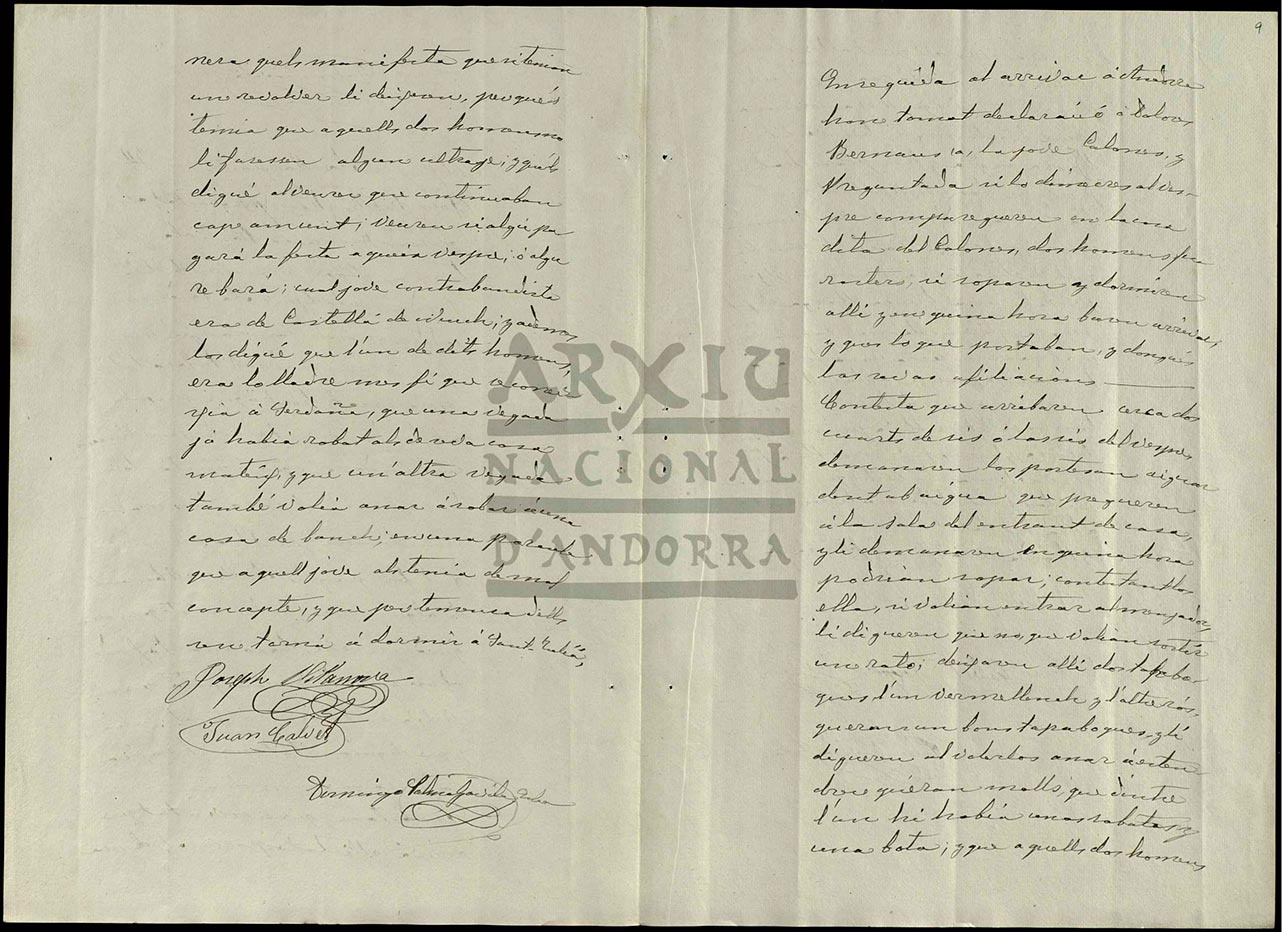 nera quels manifesta que si tenian
un revolver li deixen, perqués
temia que aquells dos homens no
li fassessen algun ultrage; y quels
digué alveurer que continuaban
cap amunt; veuren si algú pa
gará la festa aqueix vespre, ó algu
rebará; cual jove contrabandista
era de Castellá de Nuch; y ademes
los digué que l'un de dits homens,
era lo lladre mes fi que se conei
xia á Serdaña, que una vegada
já habia robat als de sa casa
mateix, y que un'altra vegada
també volia anar á robar á una
casa de banch; en una paraula
que aquell jove als tenia de mal
concepte, y que per temensa d'ells
sen torná á dormir á Sant Juliá,
Joseph Vilanova
Juan Calvet
Domingo
9
Enseguida al arrivar á Andorra
hem tomat declaració á Dolors
Bernaus, la jove Calones, y
Preguntada si lo dimecres al ves-
pre comparegueren en la casa
dita del Calones, dos homens fu
rasters, si soparen y dormiren
allí y en quina hora haven arrivat,
y ques lo que portaban, y dongués
las sevas afiliacions
Contesta que arribaren cerca dos
cuarts de sis ó las sis del vespre
demanaren los portesan aiguar
dent ab aigua que prengueren
á la sala del entrant de casa,
y li demanaren en quina hora
podrian sopar; contestantlos
ella, si volian entrar al menjador,
li digueren que no, que volian sortir
un rato; deixaren allí dos tapabo-
ques l'un vermellench y l'altre rós,
queran un bons tapaboques, y li
digueren al volerlos anar á esten
drer quéran molls, que dintre
l'un hi había unas sabatas y
una bota; y que aquells dos homens
ARXIU
NACIONAL
D'ANDORRA